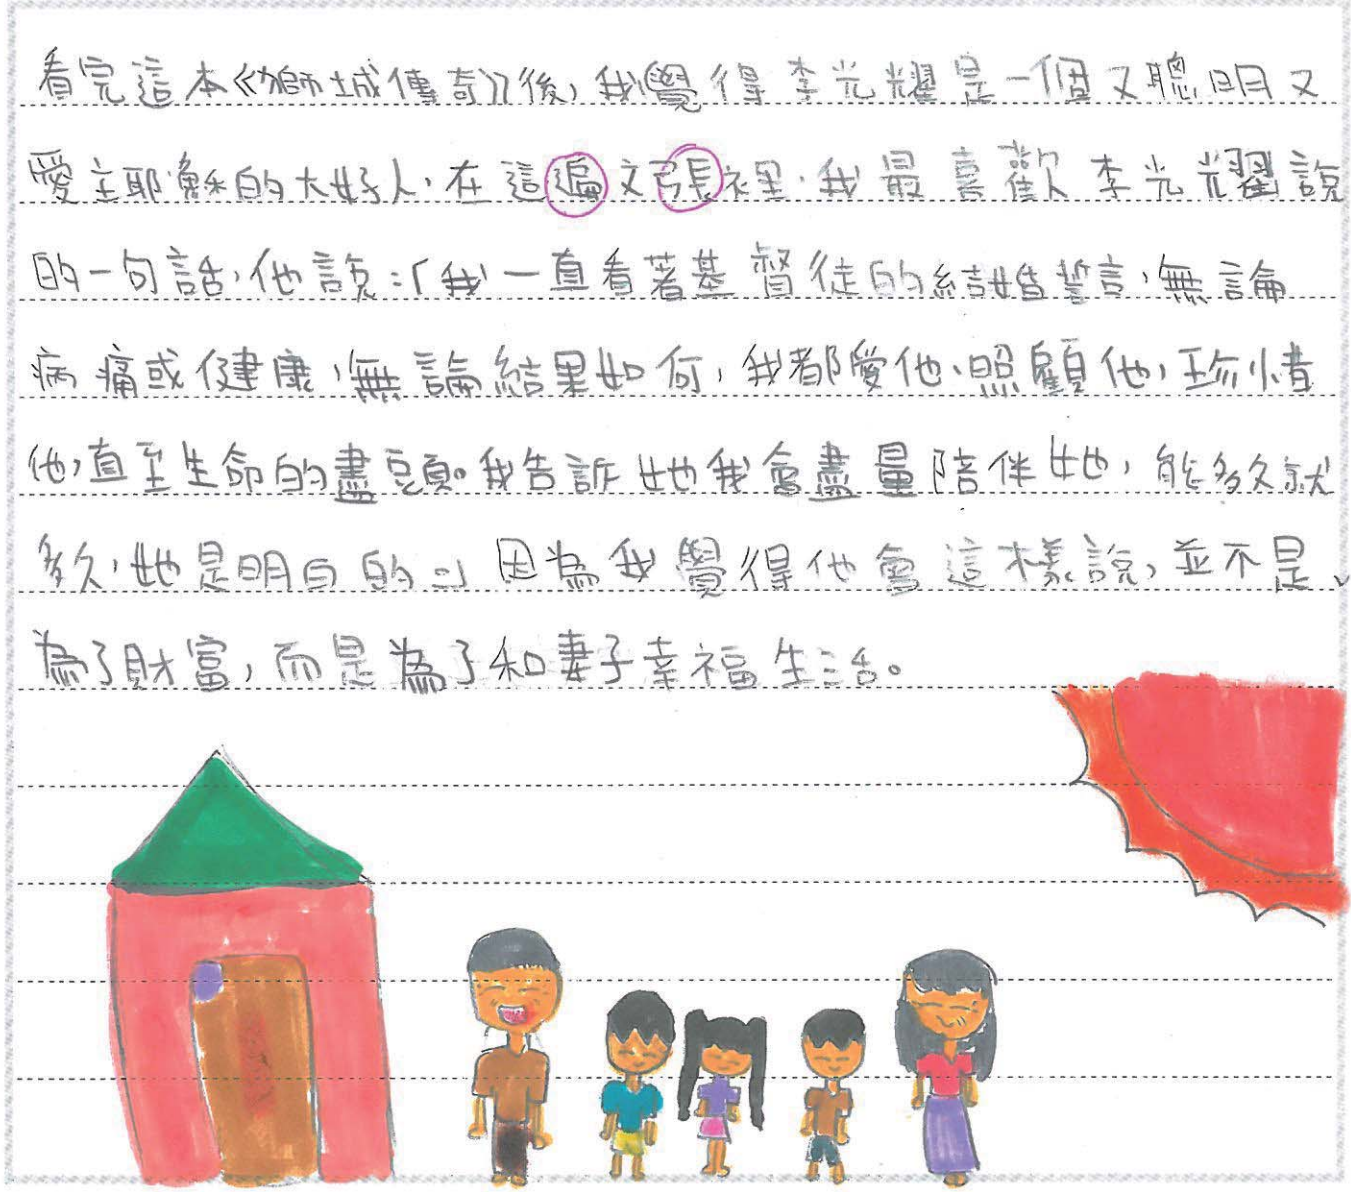 看完這本《獅城傳奇》後,我覺得李光耀是一個又聰明又
愛主耶穌的大好人,在這遍文張裡,我最喜歡李光耀說
的一句話,他說:「我一直看著基督徒的結婚誓言,無論
病痛或健康,無論結果如何,我都愛他、照顧他,珍惜
他,直至生命的盡頭。我告訴她我會盡量陪伴她,能多久就
多久,她是明白的。」因為我覺得他會這樣說,並不是、
為了財富,而是為了和妻子幸福生活。